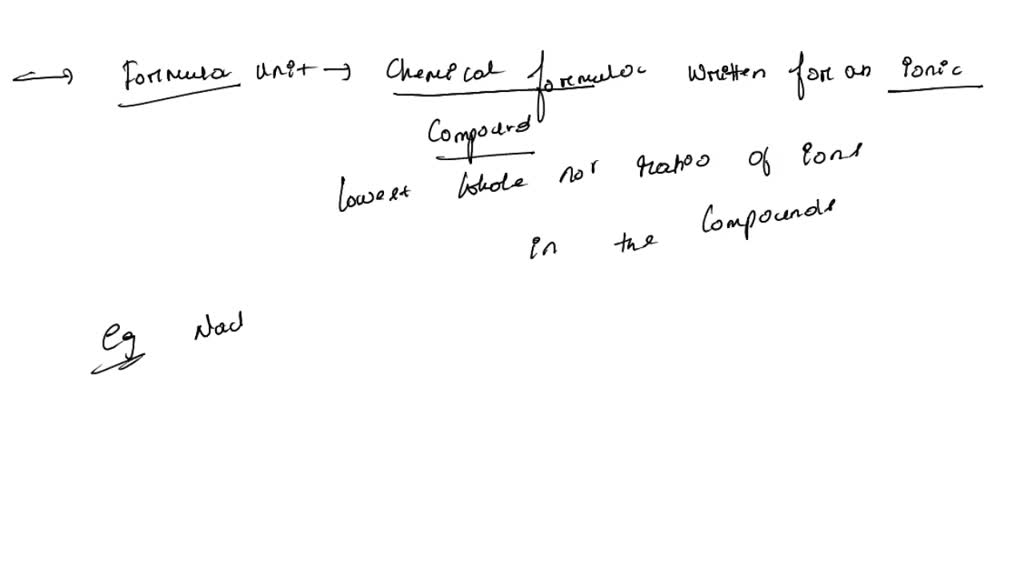 Formula unit → Chemical formula written for an ionic
Compound
lowest whole no. ratio of ions
in the Compounds
eg NaCl